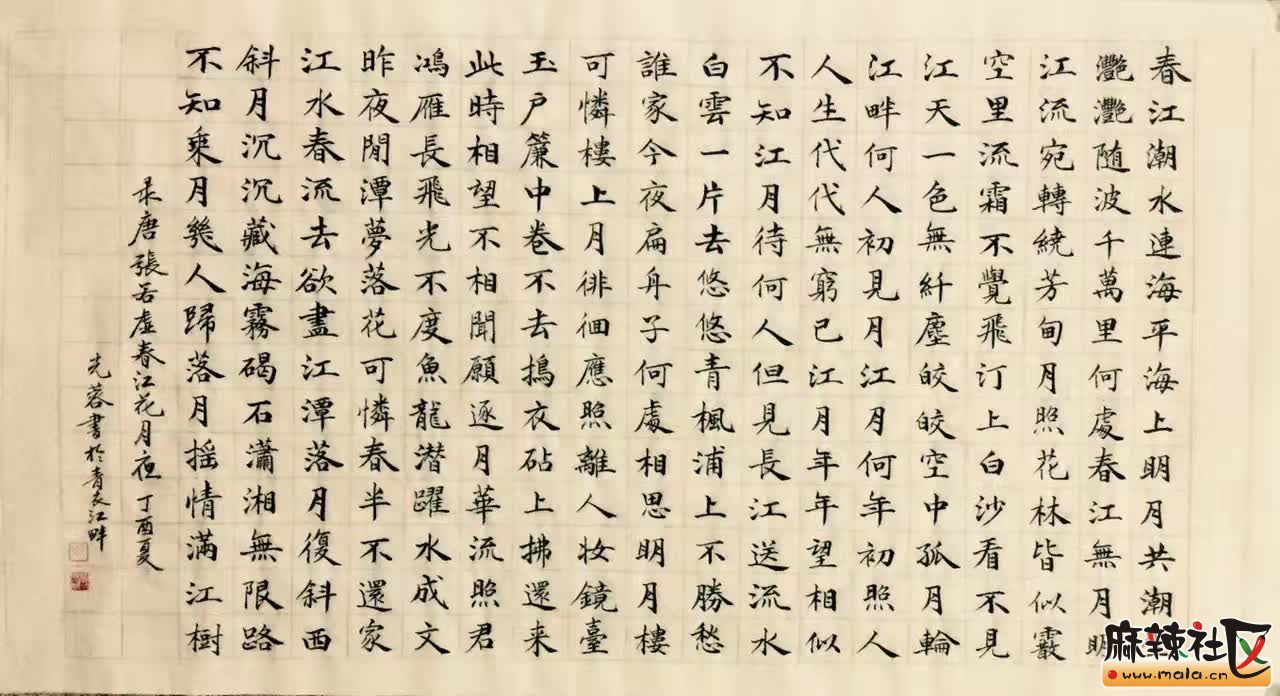 春江潮水連海平海上明月共潮
灩灩随波千萬里何處春江無月明
江流宛轉繞芳甸月照花林皆似霰
空里流霜不覺飛汀上白沙看不見
江天一色無纤塵皎皎空中孤月輪
江畔何人初見月江月何年初照人
人生代代無窮已江月年年望相似
不知江月待何人但見長江送流水
白雲一片去悠悠青楓浦上不勝愁
誰家今夜扁舟子何處相思明月樓
可憐樓上月徘徊應照離人妝鏡臺
玉户簾中卷不去搗衣砧上拂還来
此時相望不相聞願逐月華流照君
鴻雁長飛光不度魚龍潜躍水成文
昨夜閒潭夢落花可憐春半不還家
江水春流去欲盡江潭落月復斜西
斜月沉沉藏海霧碣石瀟湘無限路
不知乘月幾人歸落月摇情滿江樹
录唐張若虚春江花月夜 丁酉夏
光蓉書於青衣江畔
麻辣社区
www.mala.cn